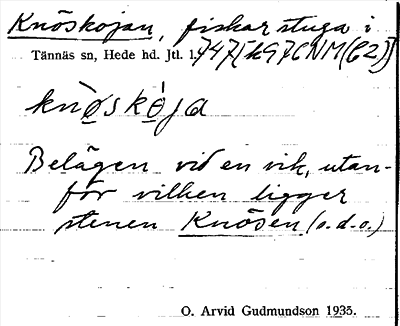 Knöskojan, fiskarstuga i
Tännäs sn, Hede hd. Jtl.
knøskoja
Belägen vid en vik, utan-
för vilken ligger
stenen Knösen (o.d.o.)
O. Arvid Gudmundson 1935.